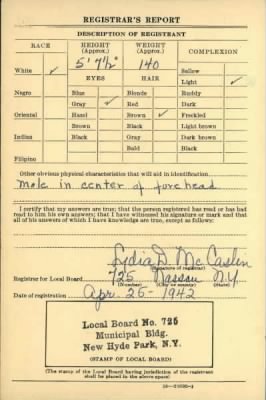 REGISTRAR'S REPORT
DESCRIPTION OF REGISTRANT
RACE HEIGHT (Approx.) WEIGHT (Approx.) COMPLEXION
White ✓ 5' 7½" 140 Sallow
EYES HAIR Light ✓
Negro Blue Blonde Ruddy
Gray ✓ Red Dark
Oriental Hazel Brown ✓ Freckled
Brown Black Light brown
Indian Black Gray Dark brown
Bald Black
Filipino
Other obvious physical characteristics that will aid in identification
Mole in center of forehead
I certify that my answers are true; that the person registered has read or has had
read to him his own answers; that I have witnessed his signature or mark and that
all of his answers of which I have knowledge are true, except as follows:
Lydia D. McCaslin
(Signature of registrar)
Registrar for Local Board 725 Nassau N.Y.
(Number) (City or county) (State)
Date of registration Apr. 26 - 1942
Local Board No. 725
Municipal Bldg.
New Hyde Park, N.Y.
(STAMP OF LOCAL BOARD)
(The stamp of the Local Board having jurisdiction of the registrant
shall be placed in the above space)